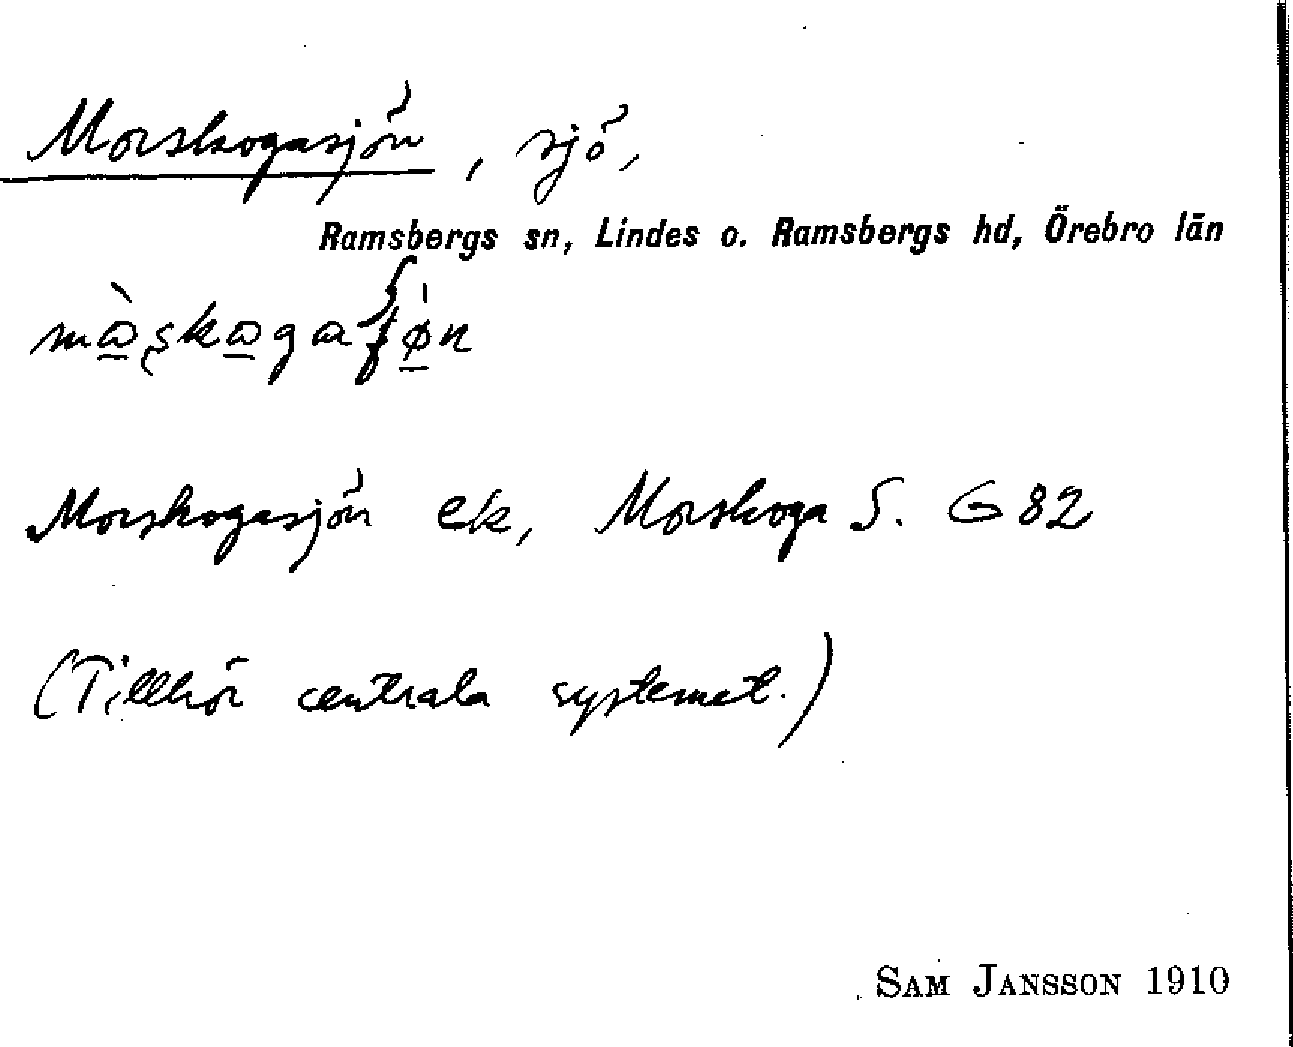 Morskogasjön, sjö,
Ramsbergs sn, Lindes o. Ramsbergs hd, Örebro län
Morskogasjön ek, Morskoga S. G 82
(Tillhör centrala systemet.)
SAM JANSSON 1910